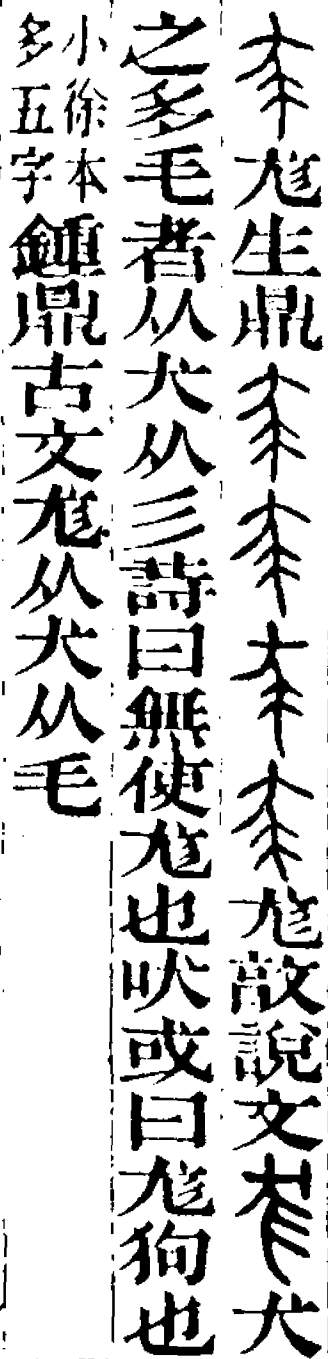 尨生鼎尨敦說文犬
之多毛者从犬从彡詩曰無使尨也吠或曰尨狗也
小徐本
多五字
鍾鼎古文尨从犬从毛